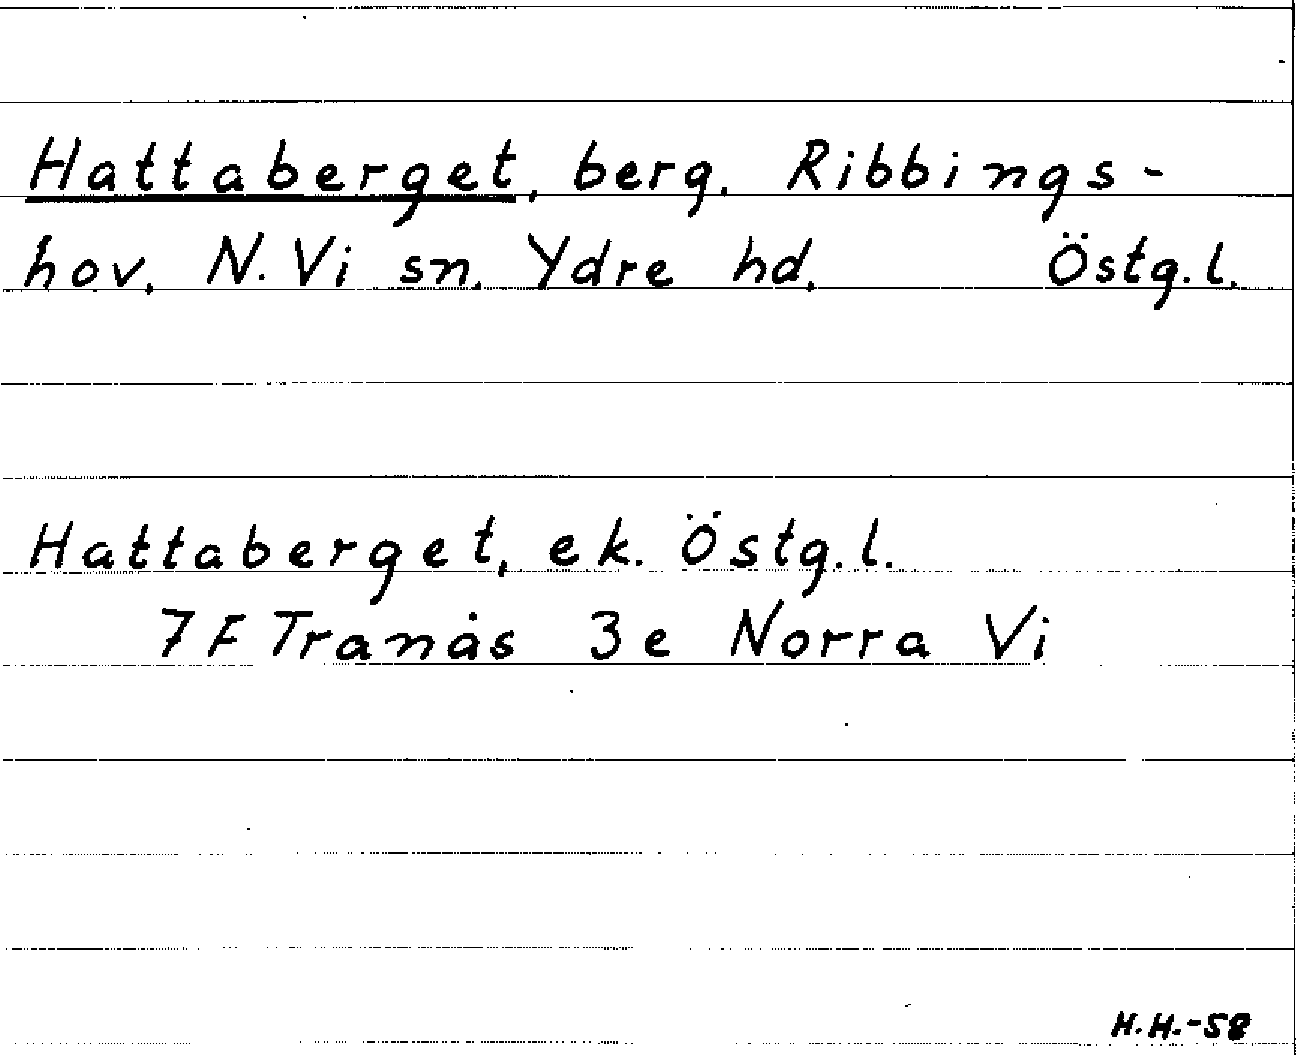 Hattaberget, berg. Ribbings-
hov. N. Vi sn. Ydre hd. Östg.l.
Hattaberget, ek. Östg.l.
7 F Tranås 3e Norra Vi
H.H.-58